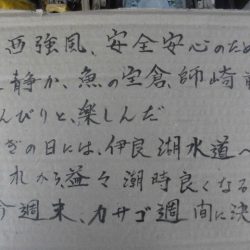 西強風、安全安心のため
静か、魚の宝倉、師崎前
んびりと、楽しんだ
ぎの日には、伊良湖水道へ
れから、益々潮時良くなる
今週末、カサゴ週間に決